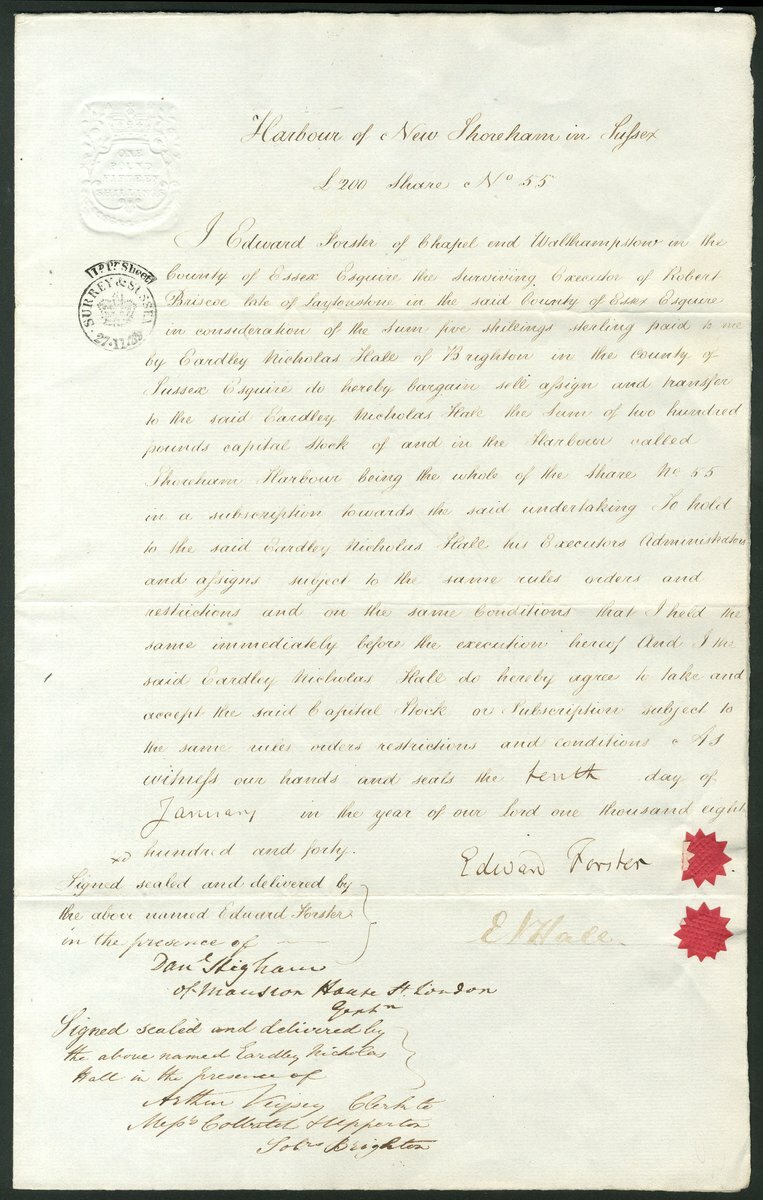 ONE
POUND
FIFTEEN
SHILLINGS
Harbour of New Shoreham in Sussex
£200 Share No 55
I Edward Forster of Chapel end Walthampstow in the
County of Essex Esquire the surviving Executor of Robert
Briscoe late of Laytonstone in the said County of Essex Esquire
in consideration of the Sum five shillings sterling paid to me
by Eardley Nicholas Hall of Brighton in the County of
Sussex Esquire do hereby bargain sell assign and transfer
to the said Eardley Nicholas Hall the Sum of two hundred
pounds capital stock of and in the Harbour called
Shoreham Harbour being the whole of the Share No 55
in a subscription towards the said undertaking To hold
to the said Eardley Nicholas Hall his Executors Administrators
and assigns subject to the same rules orders and
restrictions and on the same Conditions that I held the
same immediately before the execution hereof And I the
said Eardley Nicholas Hall do hereby agree to take and
accept the said Capital Stock or Subscription subject to
the same rules orders restrictions and conditions As
witness our hands and seals the tenth day of
January in the year of our Lord one thousand eight
hundred and forty.
Edward Forster
E N Hall
Signed sealed and delivered by
the above named Edward Forster
in the presence of
Danl Higham
of Mansion House St London
Gentn
Signed sealed and delivered by
the above named Eardley Nicholas
Hall in the presence of
Arthur Clerk to
Messrs Colbatch & Upperton
Solrs Brighton
1d Pr Sheet
SURREY & SUSSEX